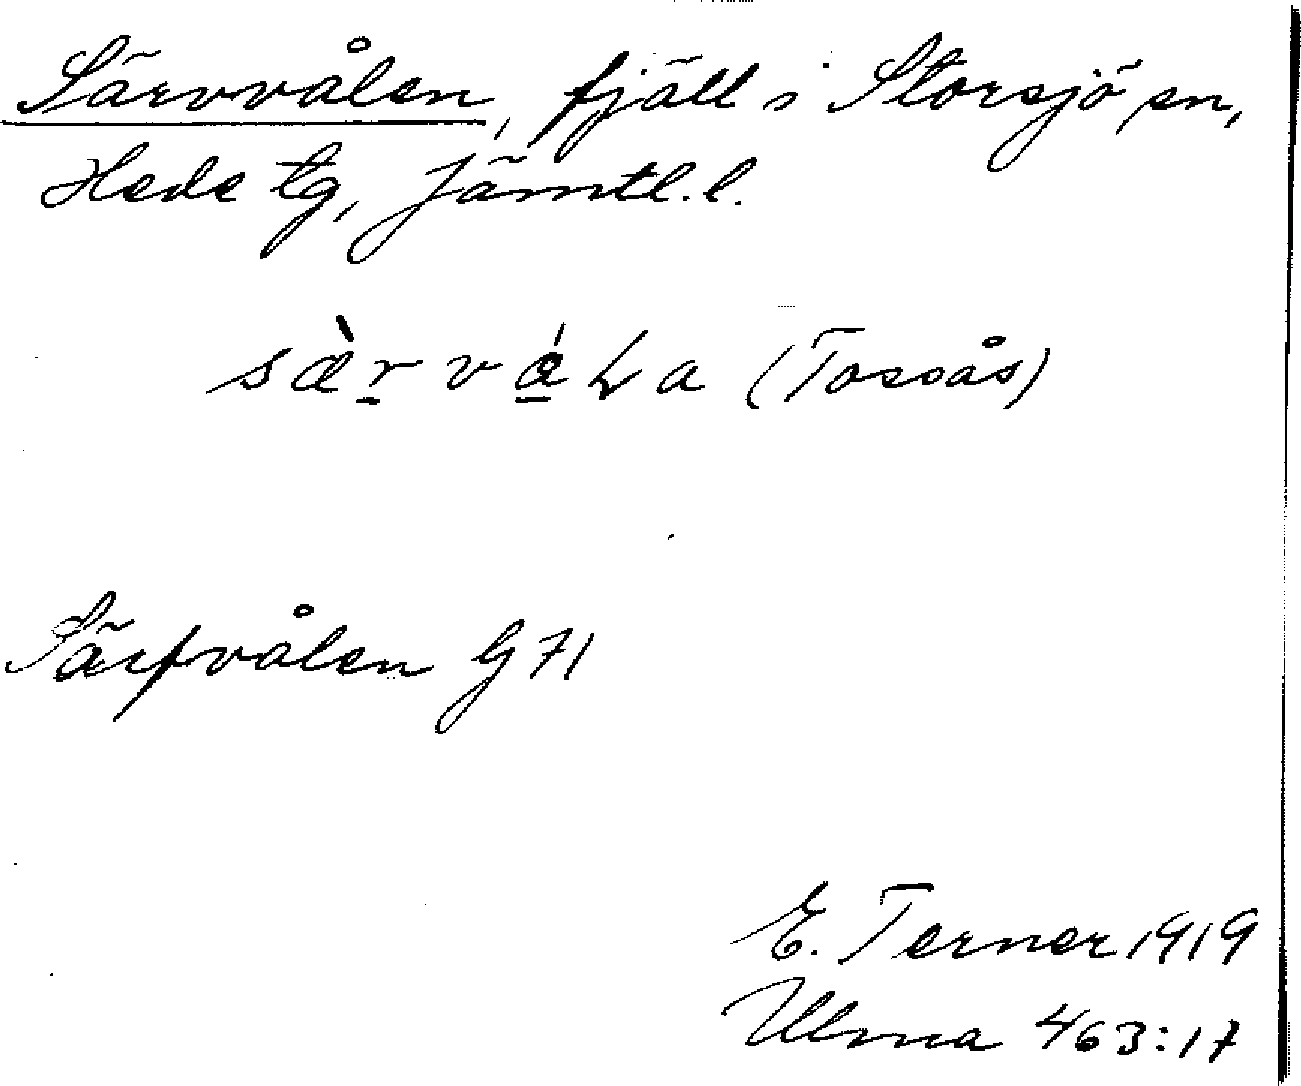 Särvvålen, fjäll i Storsjö sn,
Hede tg, Jämtl. l.
sæ̀r̲vá̲Ɬa (Tossås)
Särfvålen G 71
E. Terner 1919
Ulma 463:17